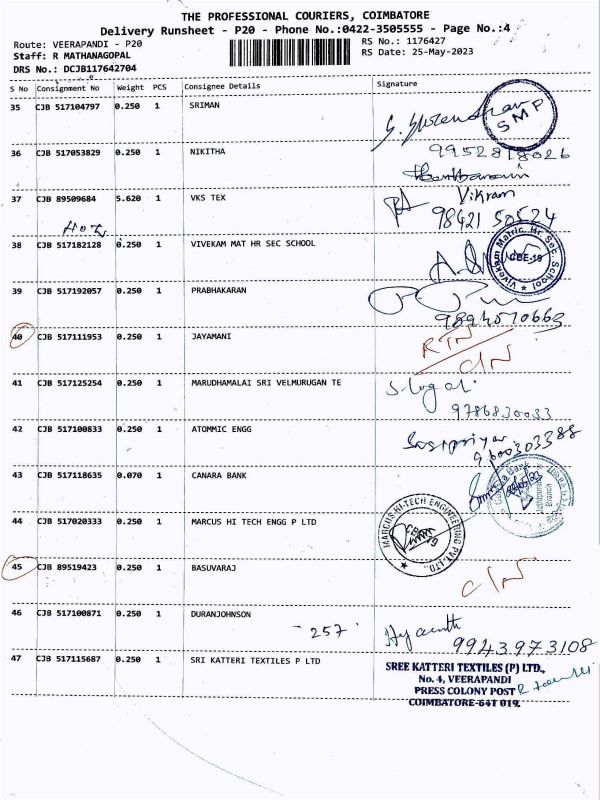 THE PROFESSIONAL COURIERS, COIMBATORE
Delivery Runsheet - P20 - Phone No.:0422-3505555 - Page No.:4
Route: VEERAPANDI - P20 RS No.: 1176427
Staff: R MATHANAGOPAL RS Date: 25-May-2023
DRS No.: DCJB117642704
S No Consignment No Weight PCS Consignee Details Signature
35 CJB 517104797 0.250 1 SRIMAN
SMP
36 CJB 517053829 0.250 1 NIKITHA 9952818026
37 CJB 89509684 5.620 1 VKS TEX Vikram
98421 50524
38 CJB 517182128 0.250 1 VIVEKAM MAT HR SEC SCHOOL
Vivekam Matric. Hr. Sec. School CBE-19
39 CJB 517192057 0.250 1 PRABHAKARAN
9894570663
40 CJB 517111953 0.250 1 JAYAMANI RTN
C/N
41 CJB 517125254 0.250 1 MARUDHAMALAI SRI VELMURUGAN TE S. Logal
9786830033
42 CJB 517100833 0.250 1 ATOMMIC ENGG Sasipriya
9600303388
43 CJB 517118635 0.070 1 CANARA BANK
Canara Bank Branch
44 CJB 517020333 0.250 1 MARCUS HI TECH ENGG P LTD
MARCUS HI-TECH ENGINEERING PVT. LTD.,
45 CJB 89519423 0.250 1 BASUVARAJ C/N
46 CJB 517100871 0.250 1 DURANJOHNSON
- 257 Hyacinth
9943973108
47 CJB 517115687 0.250 1 SRI KATTERI TEXTILES P LTD
SREE KATTERI TEXTILES (P) LTD.,
No. 4, VEERAPANDI
PRESS COLONY POST
COIMBATORE-641 019.